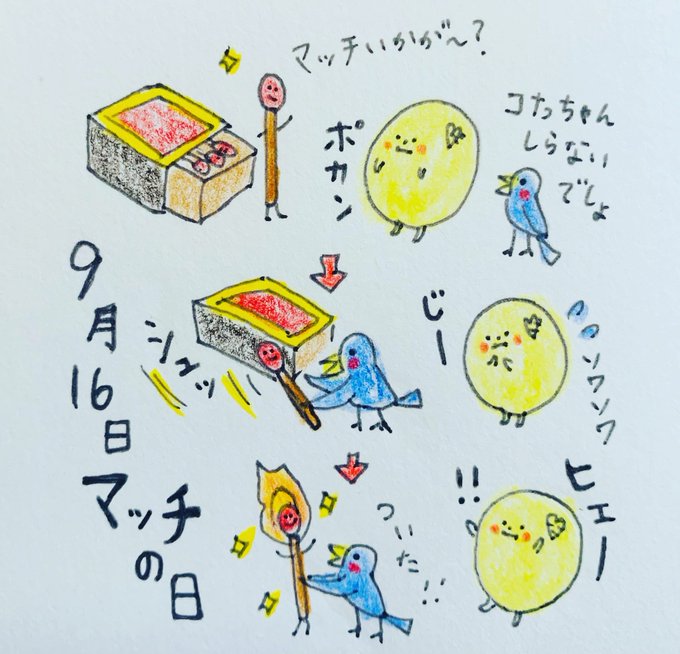 マッチいかが〜?
ポカン
コナっちゃん
しらない
でしょ
9月16日
マッチの日
シュッ
じー
ソワソワ
ついた!!
!!
ヒエー